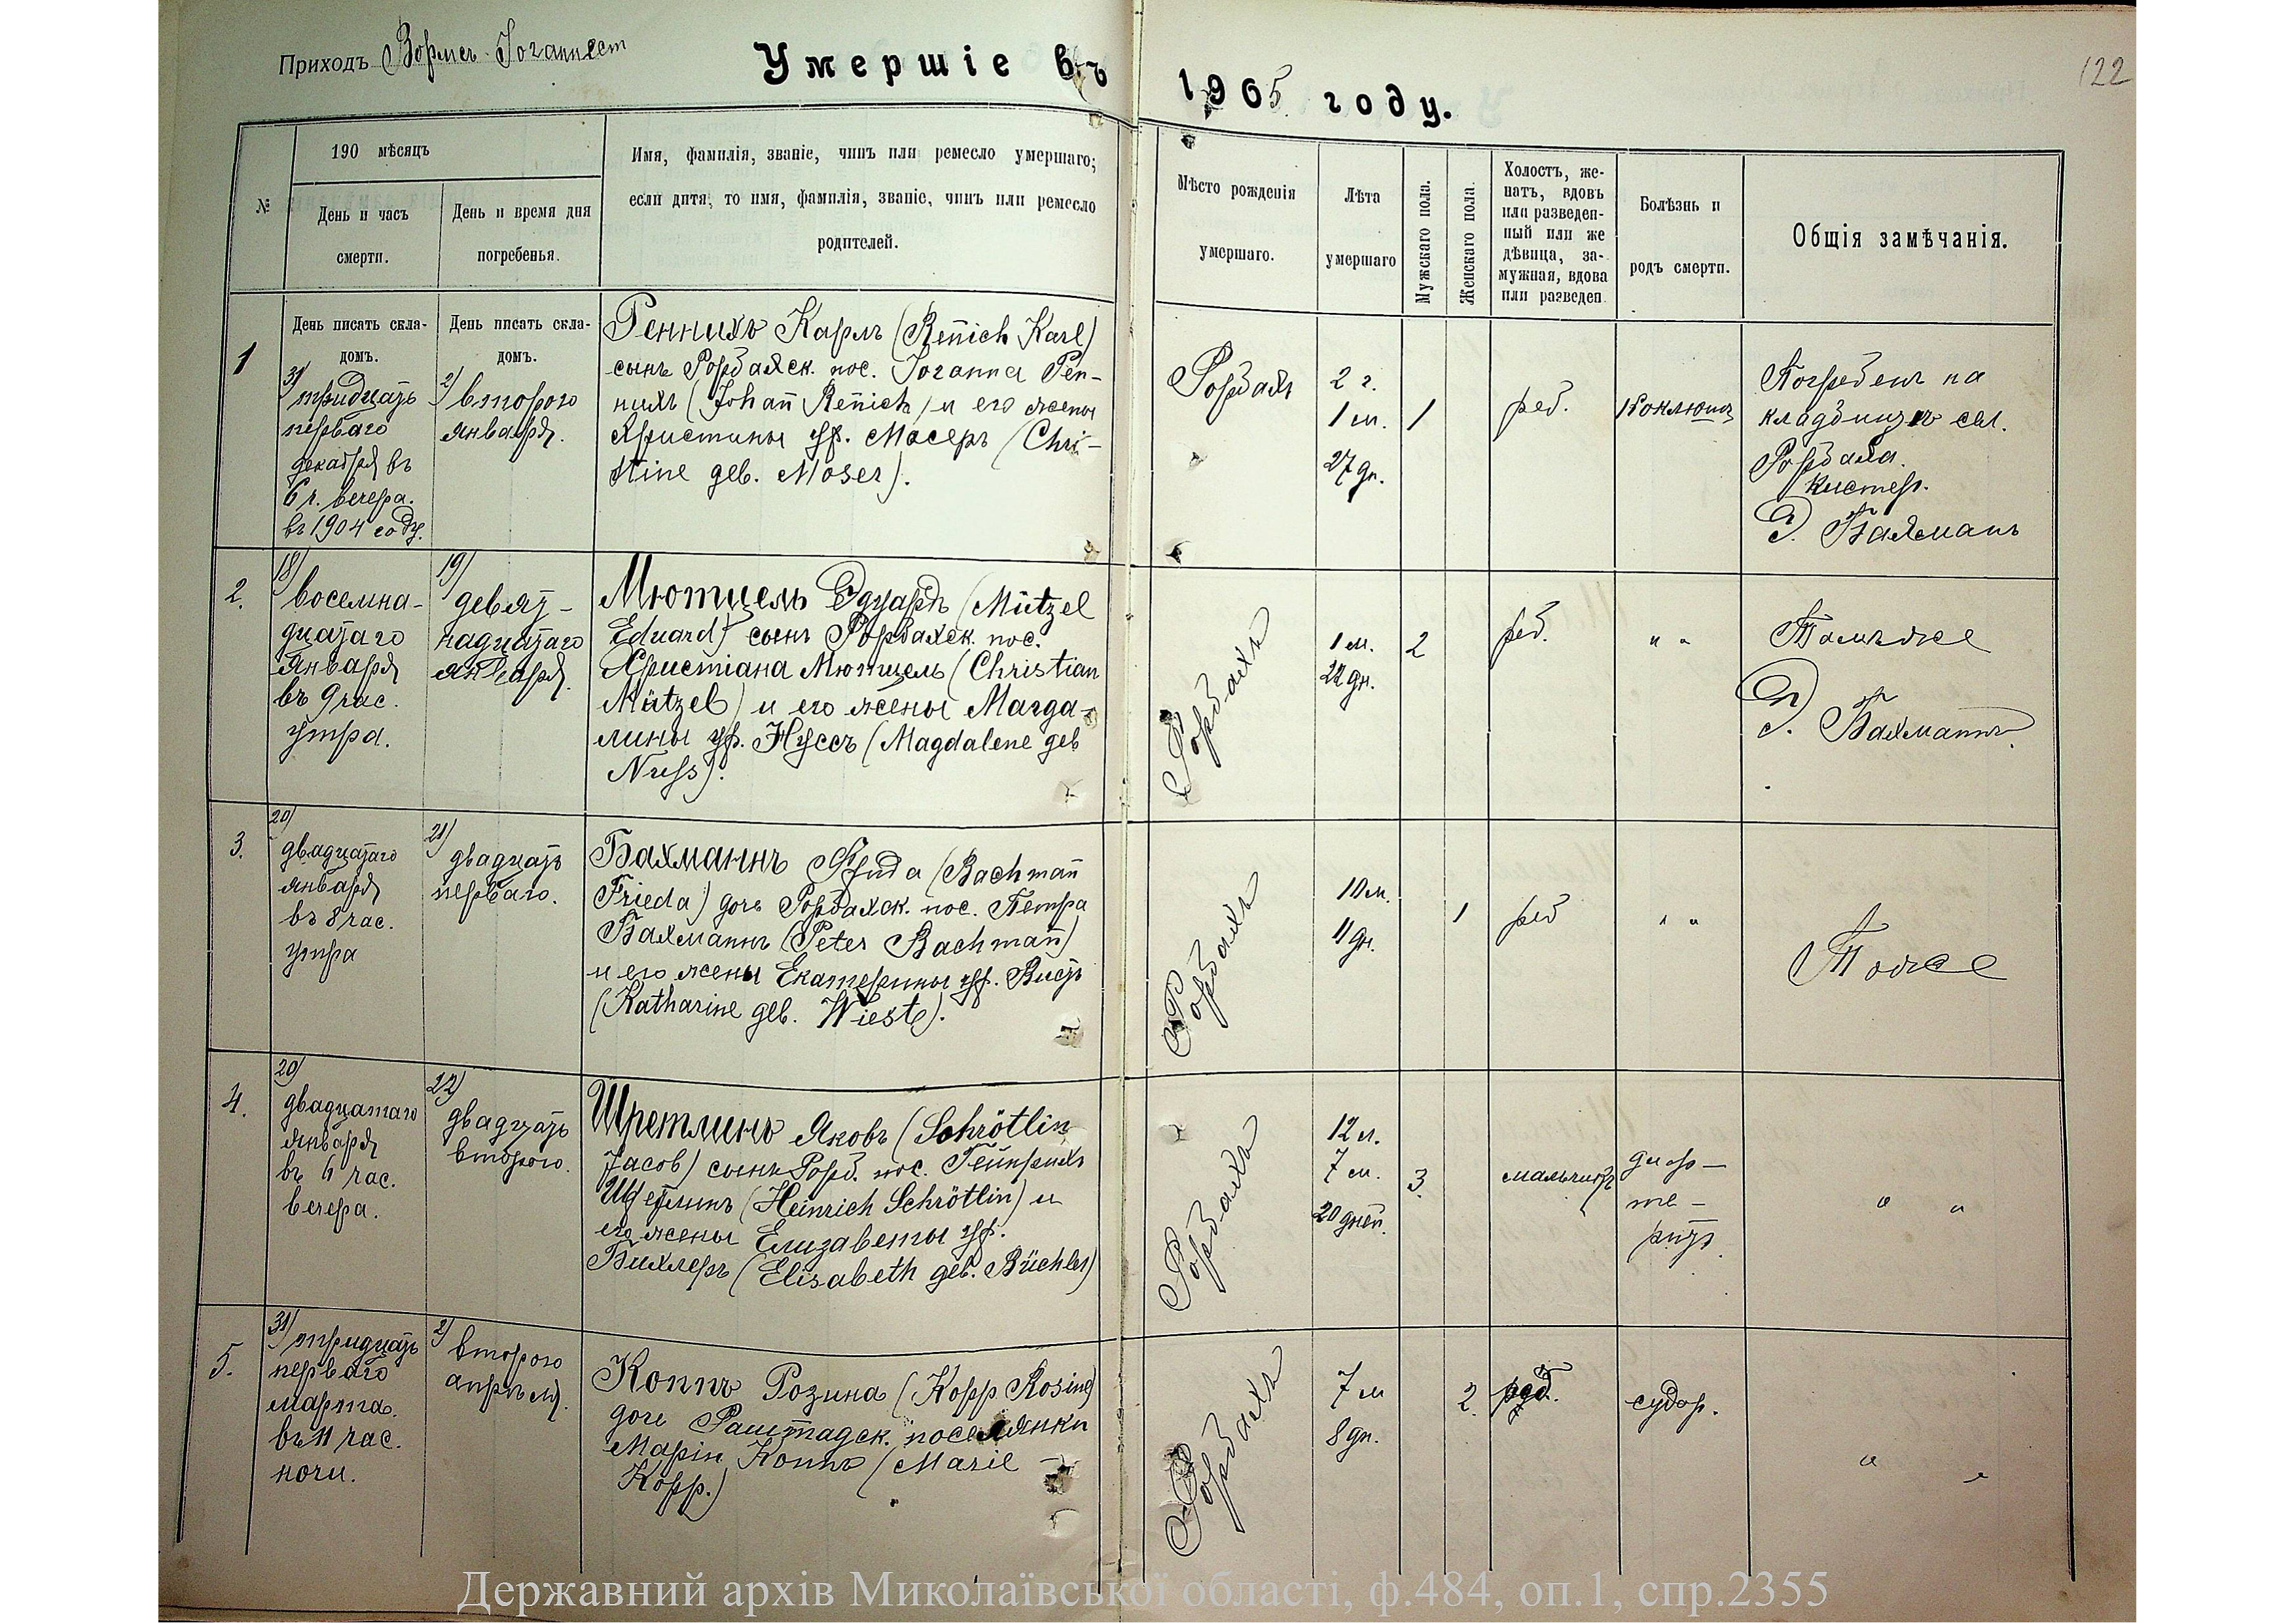 Приходъ Вормсъ-Іоганнест
Умершіе въ 1905 году.
122
№
190 мѣсяцъ
День и часъ
смерти.
День и время дня
погребенья.
Имя, фамилія, званіе, чинъ или ремесло умершаго;
если дитя, то имя, фамилія, званіе, чинъ или ремесло
родителей.
Мѣсто рожденія
умершаго.
Лѣта
умершаго
Мужскаго пола.
Женскаго пола.
Холостъ, же-
натъ, вдовъ
или разведен-
ный или же
дѣвица, за-
мужная, вдова
или развeден.
Болѣзнь и
родъ смерти.
Общія замѣчанія.
1
День писать скла-
домъ.
31) тридцать
перваго
декабря въ
6 ч. вечера.
въ 1904 году.
День писать скла-
домъ.
2) второго
января.
Реннихъ Карлъ (Reñich Karl)
сынъ Рорбахск. пос. Іоганна Рен-
нихъ (Johañ Reñich) и его жены
Христины ур. Мосеръ (Chri-
stine geb. Moser).
Рорбахъ
2 г.
1 м.
27 дн.
1
реб.
Коклюшъ
Погребенъ на
кладбищѣ сел.
Рорбаха.
Кистер.
Э. Бахманъ
2.
18) восемна-
дцатаго
января
въ 9 час.
утра.
19) девят-
надцатаго
января.
Мютцель Эдуардъ (Mützel
Eduard) сынъ Рорбахск. пос.
Христіана Мютцель (Christian
Mützel) и его жены Магда-
лины ур. Нуссъ (Magdalene geb
Nuss).
Рорбахъ
1 м.
22 дн.
2
реб.
" "
Тамъ же
Э. Бахманнъ
3.
20)
двадцатаго
января
въ 8 час.
утра
21)
двадцать
перваго.
Бахманнъ Фрида (Bachmañ
Frieda) дочь Рорбахск. пос. Петра
Бахманнъ (Peter Bachmañ)
и его жены Екатерины ур. Вистъ
(Katharine geb. Wieste).
Рорбахъ
10 м.
11 дн.
1
реб
" "
Тоже
4.
20)
двадцатаго
января
въ 4 час.
вечера.
22)
двадцать
второго.
Шретлинъ Яковъ (Schrötlin
Jacob) сынъ Рорб. пос. Гейнрихъ
Шретлинъ (Heinrich Schrötlin) и
его жены Елизаветы ур.
Бихлеръ (Elisabeth geb. Büchler)
Рорбахъ
12 л.
7 м.
20 дней.
3.
мальчикъ
диф-
те-
ритъ.
" "
5.
31) тридцать
перваго
марта.
въ 11 час.
ночи.
2) второго
апрѣля.
Коппъ Розина (Kopp Rosine)
дочь Раштадск. поселянки
Маріи Коппъ (Marie -
Kopp.)
Рорбахъ
7 м
8 дн.
2.
реб.
судор.
" "
Державний архів Миколаївської області, ф.484, оп.1, спр.2355